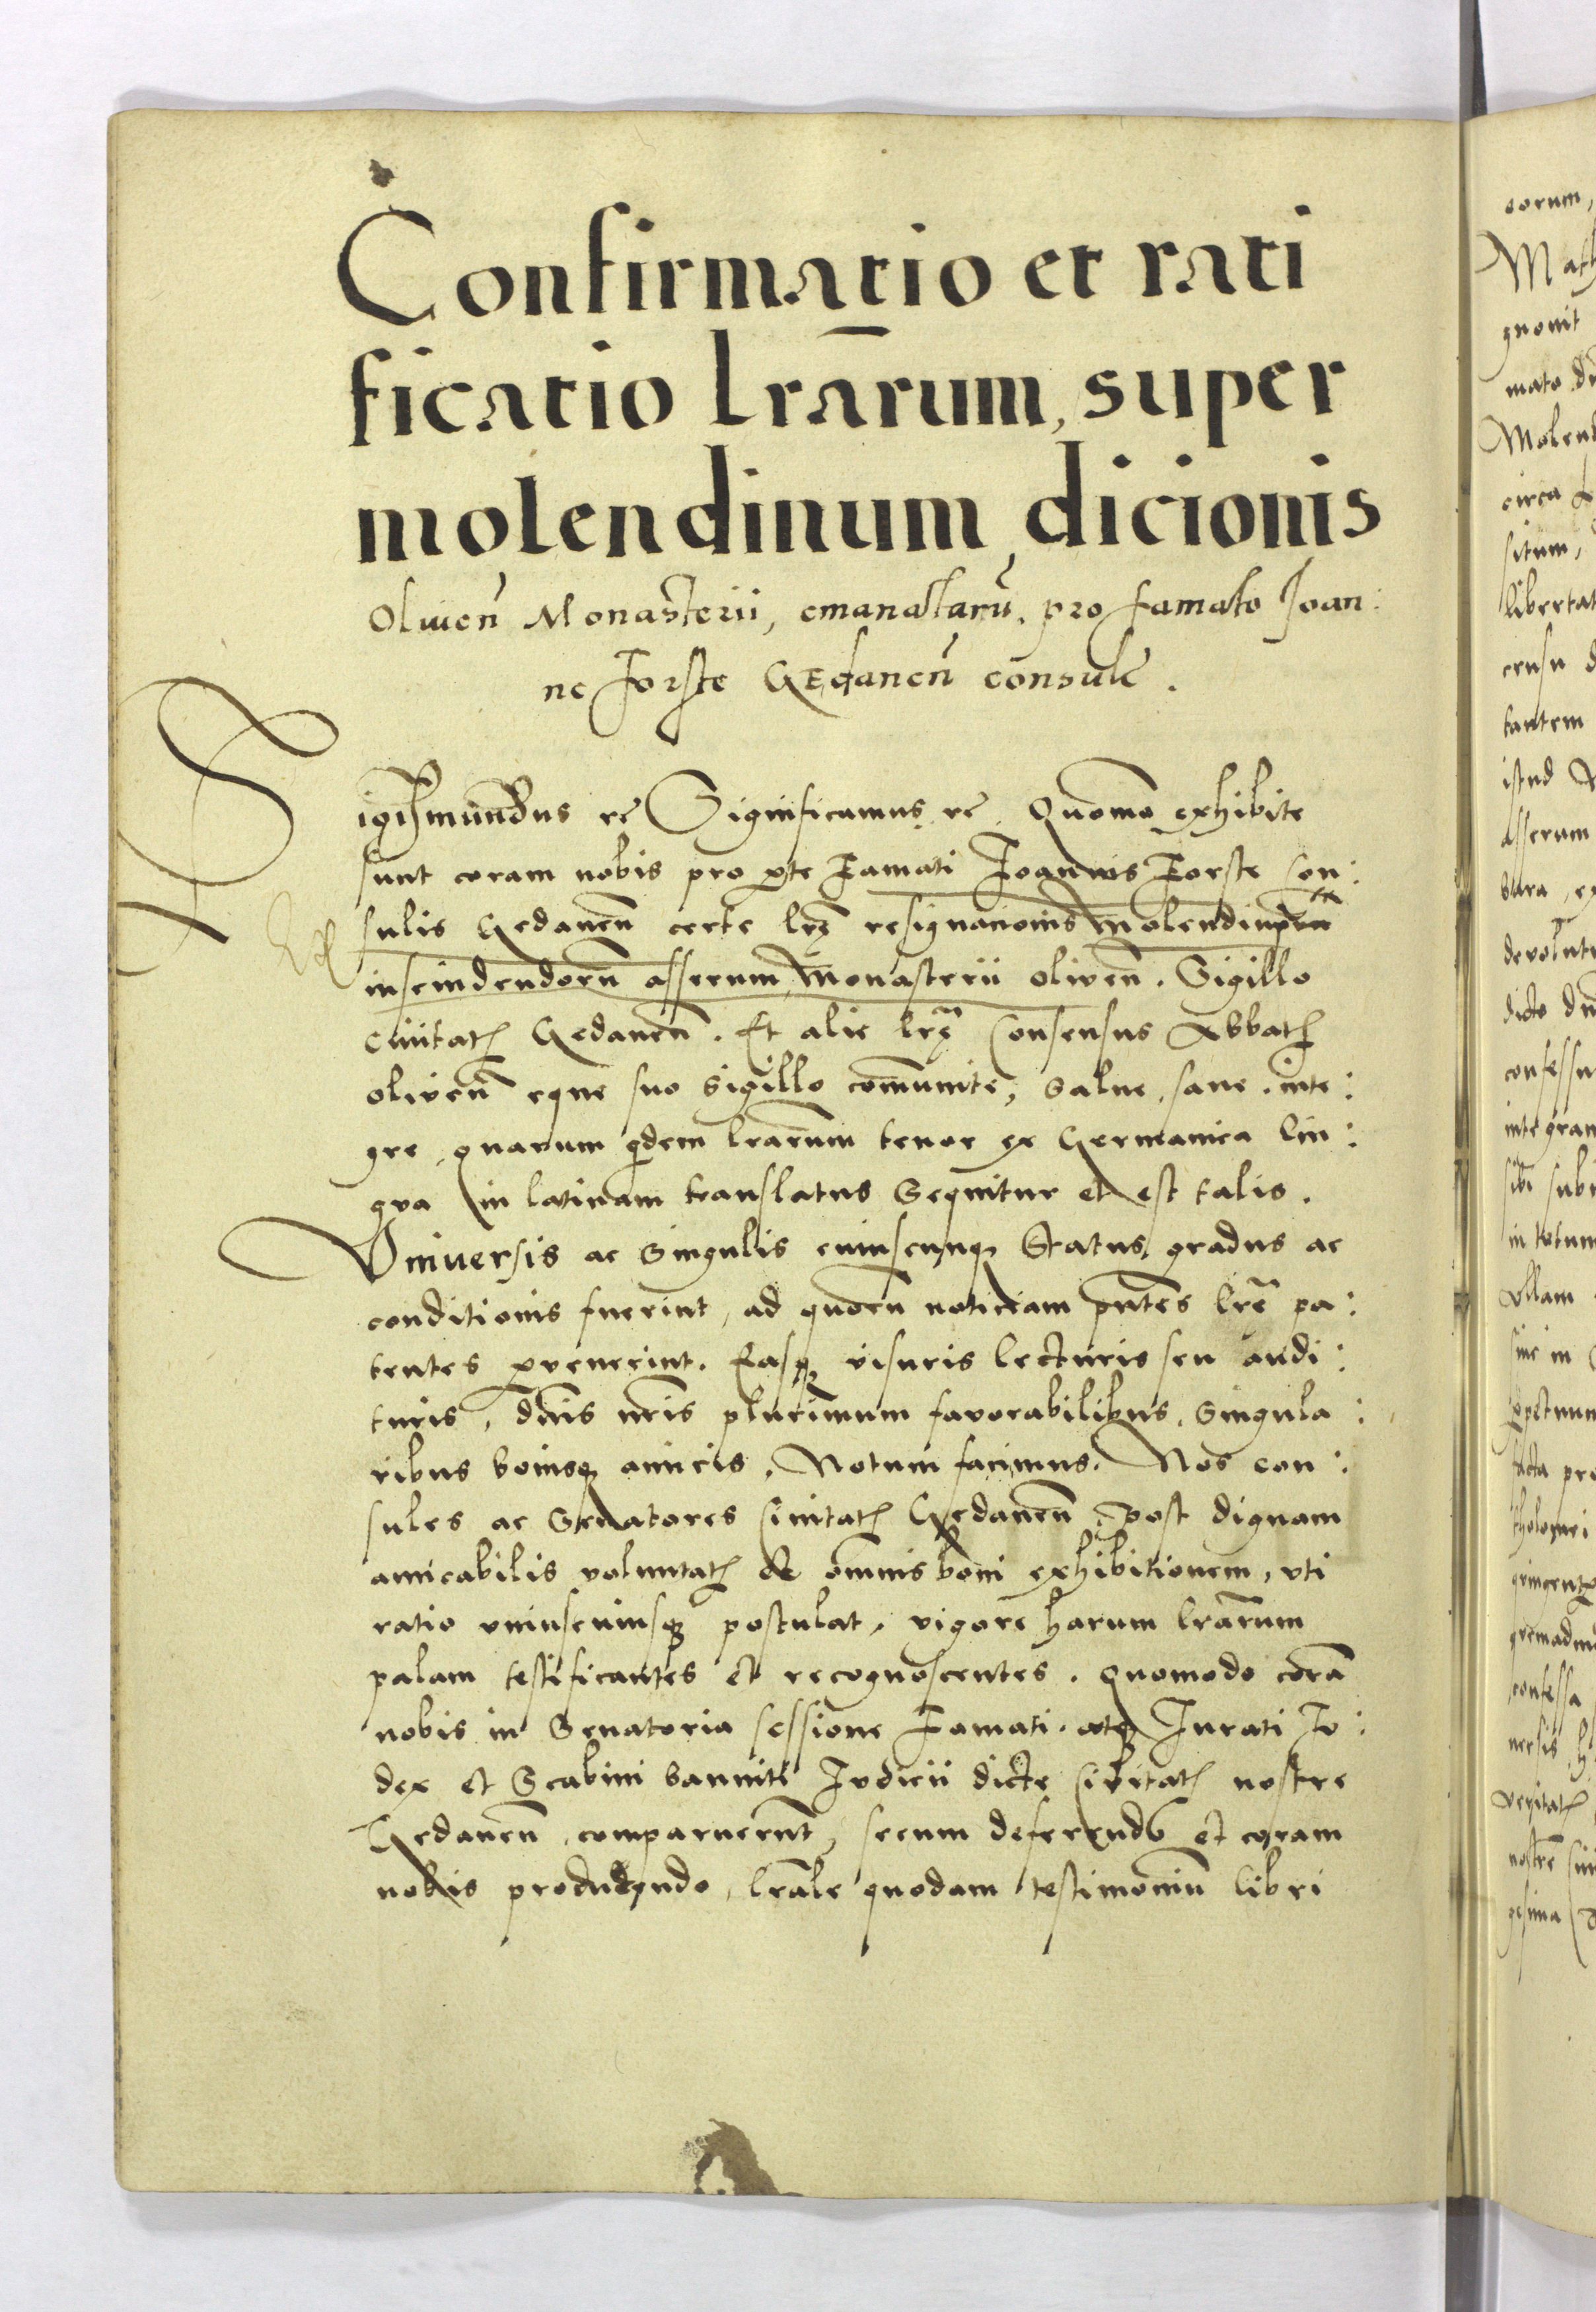 Confirmatio et rati
ficatio lr̄arum, super
molendinum dicionis
Oliueñ Monasterii, emanataru̅. pro famato Joan:
ne Forste GEdaneñ consule.
Sigismundus rc̄ Significamus rc̄. Quomo exhibite
sunt coram nobis pro p̱te Famati Joannis Forste Con:
sulis Gedaneñ certe lrę resignacionis Molendini
in scindendoru̅ asserum, Monasterii oliveñ. Sigillo
Ciuitatꝭ Gedaneñ. Et alie lrę Consensus Abbatꝭ
oliveñ eque suo Sigillo com̄unite, Salue, sane. inte:
gre, quarum qdem lrarum tenor ex Germanica lin:
gva in latinam translatus Sequitur et est talis.
Vniuersis ac Singulis cuiuscunqꝫ Status, gradus ac
conditionis fuerint, ad quoru̅ noticiam pn̄tes lrē pa:
tentes p̱venerint. Easqꝫ visuris lecturis seu audi:
turis, dn̄is nr̄is plurimum favorabilibus. Singula:
ribus bonisqꝫ amicis, Notum facimus. Nos con:
sules ac Senatores Ciuitatꝭ Gedaneñ. Post dignam
amicabilis voluntatꝭ et omnis boni exhibitionem, vti
ratio vniuscuiusqꝫ postulat, vigore harum lrarum
palam testificantes et recognoscentes. quomodo corā
nobis in Senatoria sessione Famati. atqꝫ Jurati Iv:
dex et Scabini banniti Jvdicii dicte Civitatꝭ nostre
Gedaneñ, comparuerunt, secum deferendo et coram
nobis producendo, lrale quodam testimoniu̅ libri
eorum,
Math
gnovit
mato dn
Molend
circa
situm,
libertat
censu d
tantem
istud
asserum
bura, ex
devolut
dicto dn
confessu
integram
sibi sub
in totum
Vllam
sive in
facta pro
tholomei
confessa
nersis, h
veritatꝭ
nostre Ciui
gesima